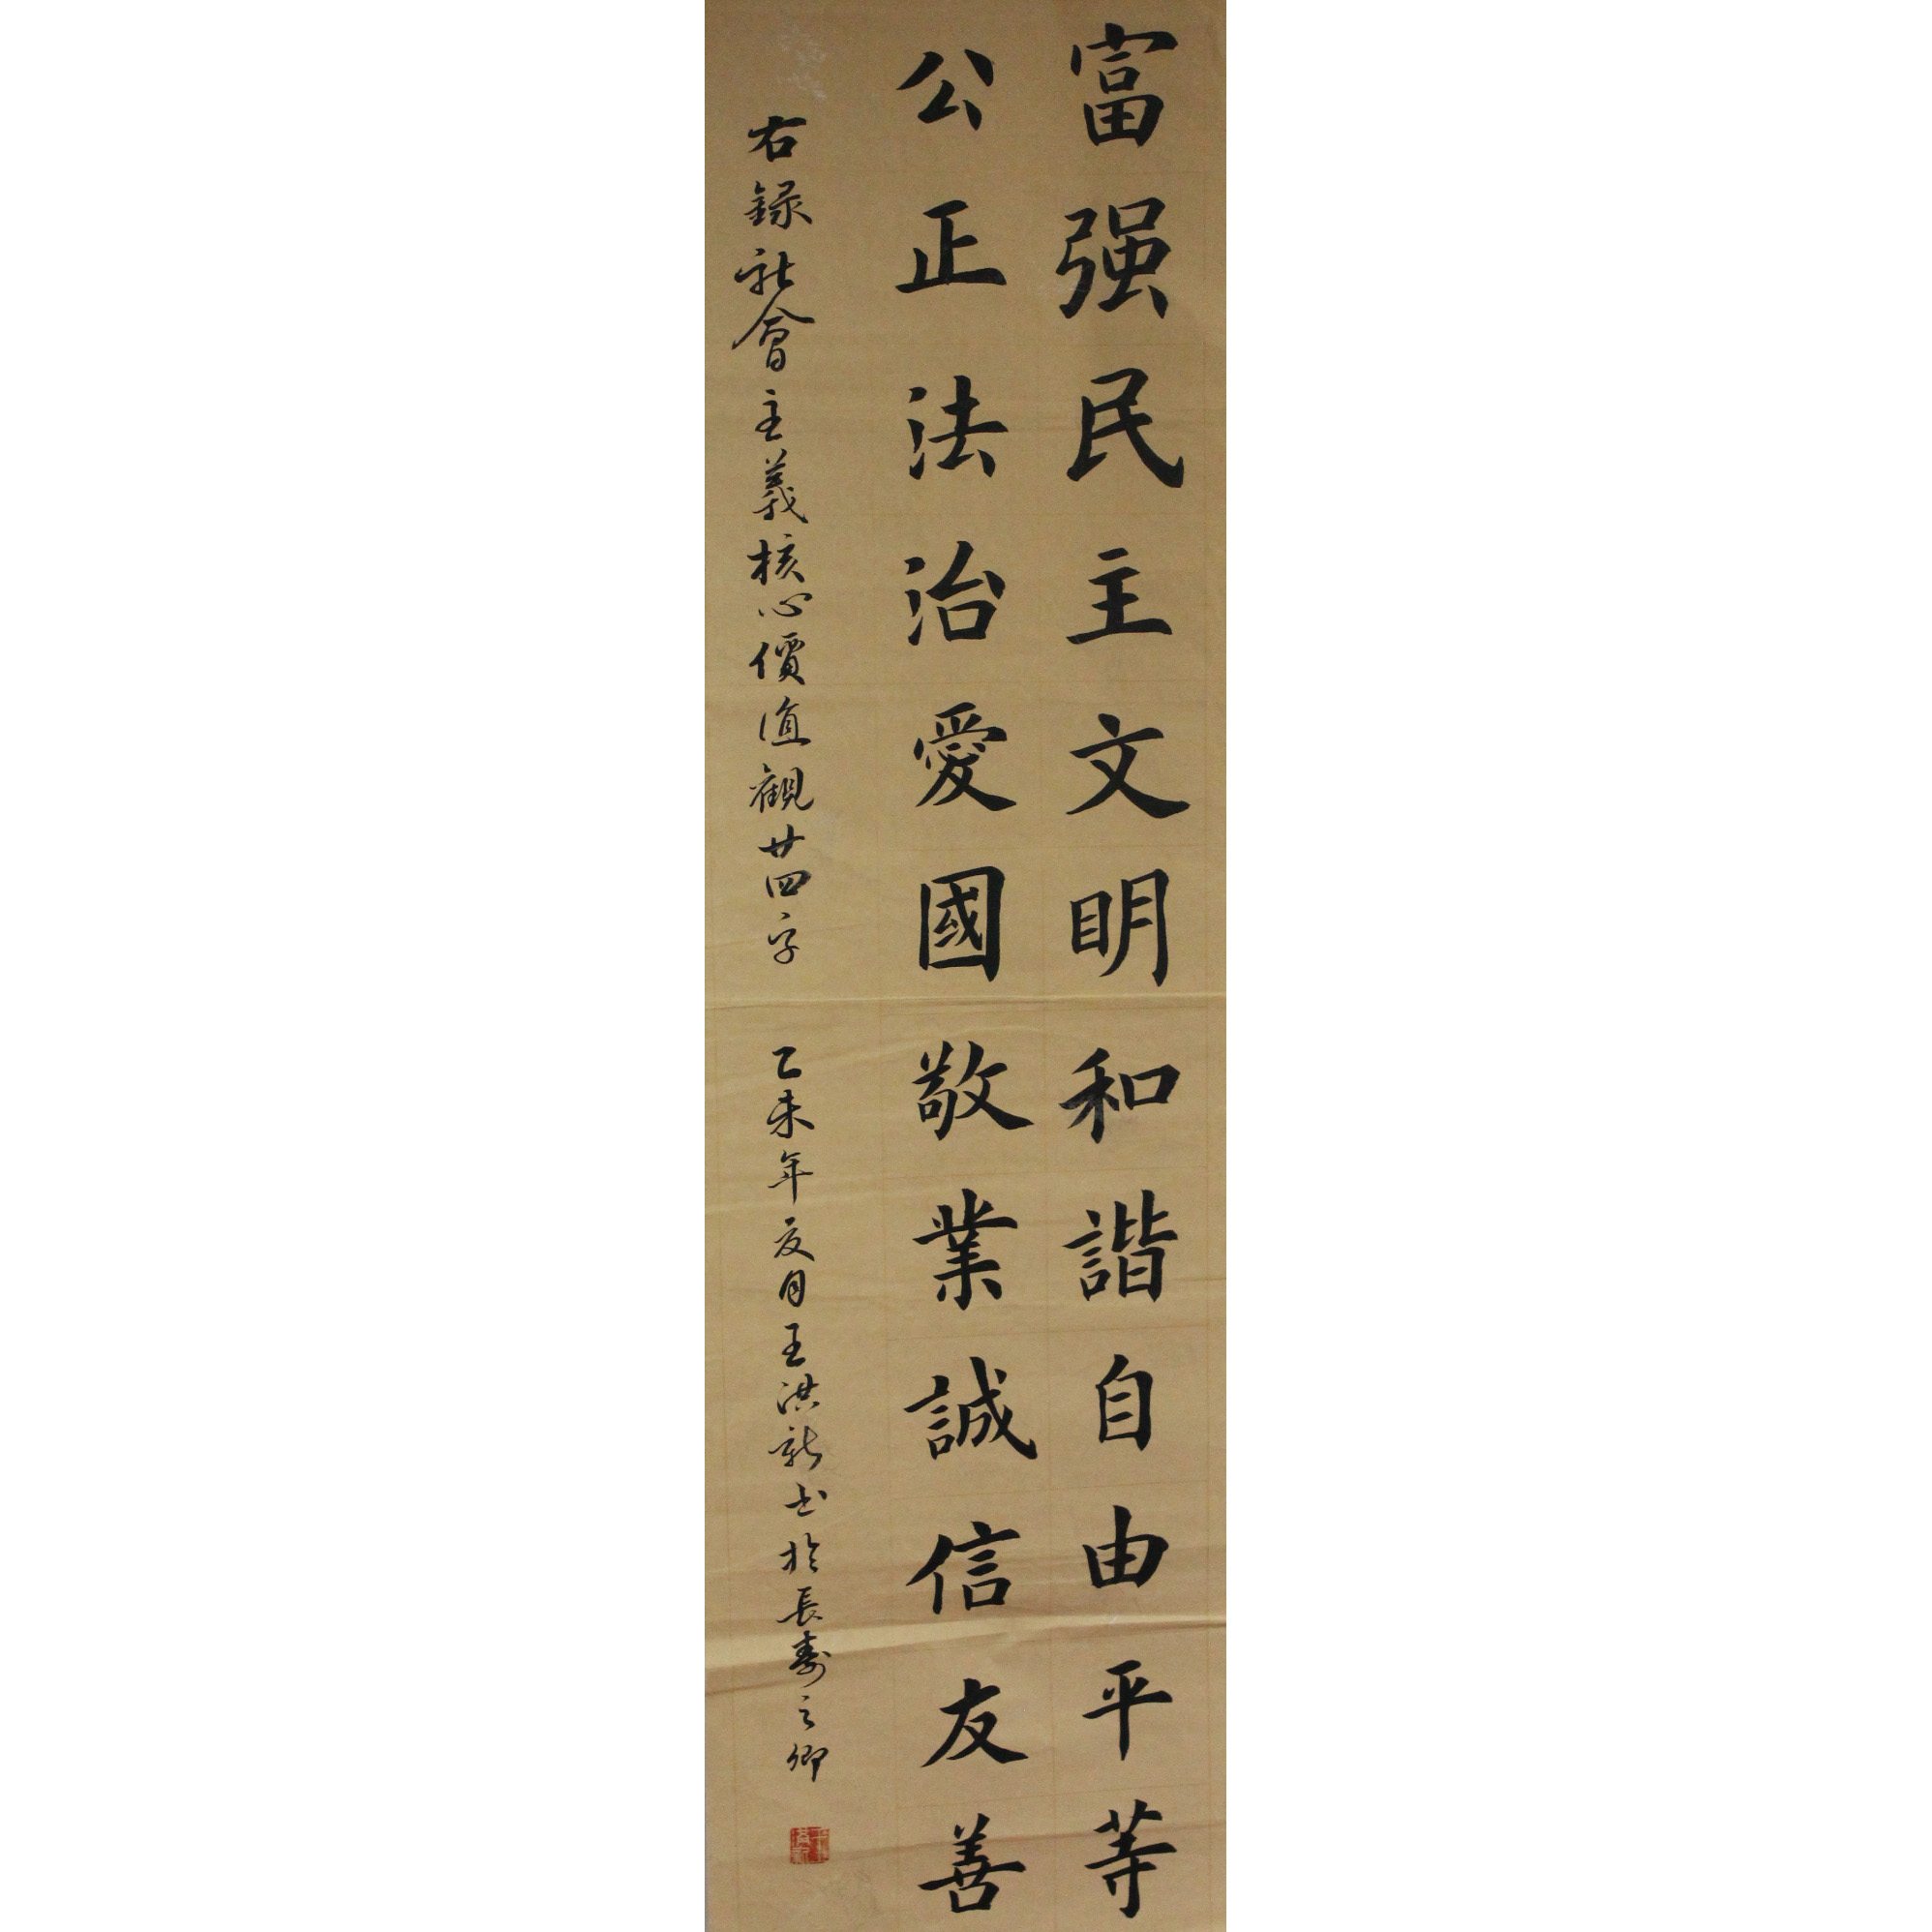 富强民主文明和諧自由平等
公正法治愛國敬業誠信友善
右録社會主義核心價值觀廿四字 乙未年夏月王洪新书於長壽之鄉